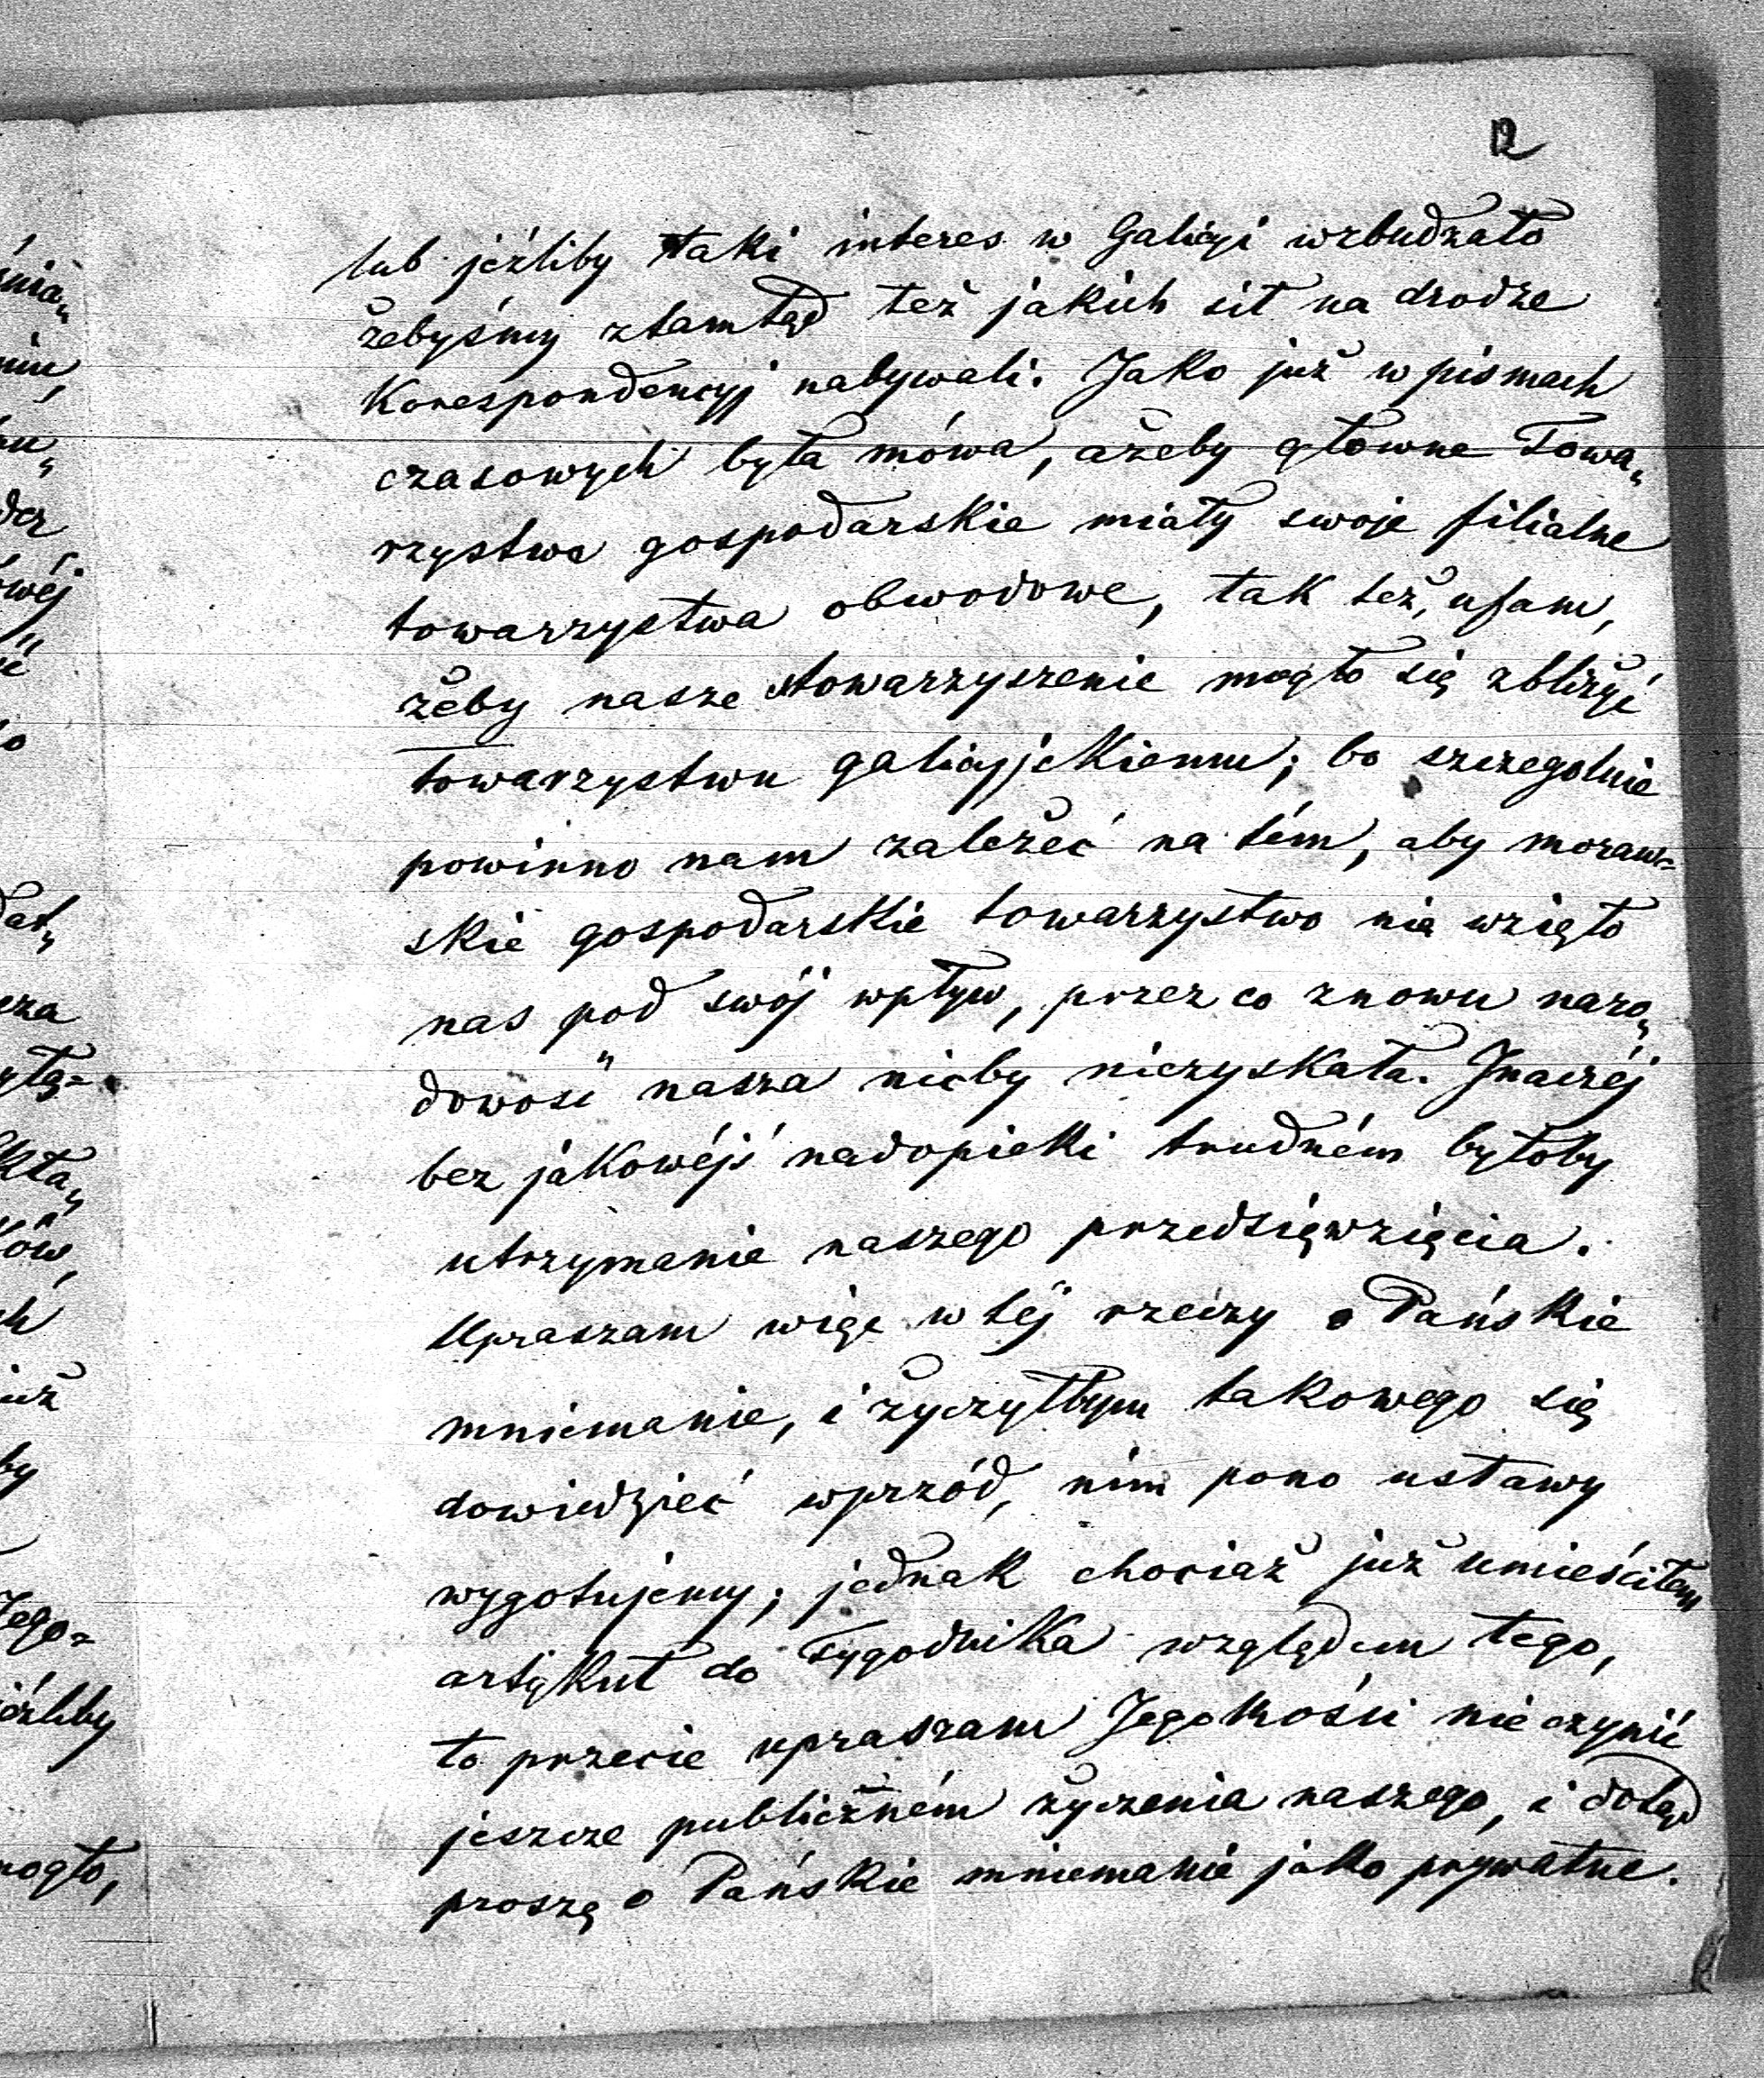 12
lub jeźliby taki interes w Galicyi wzbudzało
żebyśmy ztamtąd też jakich sił na drodze
Korespondencyj nabywali. Jako już w pismach
czasowych była mówa, ażeby główne Towa„
rzystwa gospodarskie miały swoje filialne
towarzystwa obwodowe, tak też, ufam,
żeby nasze stowarzyszenie mogło się zbliżyć
towarzystwu galicyjskiemu; bo szczegolnie
powinno nam zależeć na tém, aby moraw=
skie gospodarskie towarzystwo nie wzięło
nas pod swój wpływ, przez co znowu naro„
dowość nasza nicby niezyskała. Inaczéj
bez jakowéjś nadopieki trudném byłoby
utrzymanie naszego przedsięwzięcia.
Upraszam więc w téj rzeczy o Pańskie
mniemanie, i życzyłbym takowego się
dowiedzieć wprzód, nim pono ustawy
wygotujemy; jednak chociaż już umieściłem
artykuł do Tygodnika względem tego,
to przecie upraszam Jegomości nie czynić
jeszcze publiczném życzenia naszego, i dotąd
proszę o Pańskie mniemanie jako prywatne.